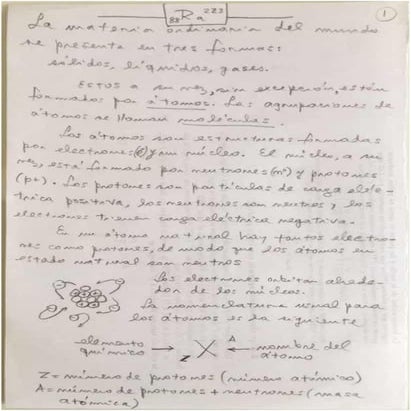 88 Ra 223
1
La materia ordinaria del mundo
se presenta en tres formas:
sólidos, líquidos, gases.
Estos a su vez, sin excepción, están
formados por átomos. Las agrupaciones de
átomos se llaman moléculas.
Los átomos son estructuras formadas
por electrones (e) y un núcleo. El núcleo, a su
vez, está formado por neutrones (nº) y protones
(p+). Los protones son partículas de carga eléc-
trica positiva, los neutrones son neutros y los
electrones tienen carga eléctrica negativa.
En un átomo natural hay tantos electro-
nes como protones, de modo que los átomos en
estado natural son neutros
Los electrones orbitan alrede-
dor de los núcleos.
La nomenclatura usual para
los átomos es la siguiente
elemento químico → Z X A ← nombre del átomo
Z = número de protones (número atómico)
A = número de protones + neutrones (masa
atómica)